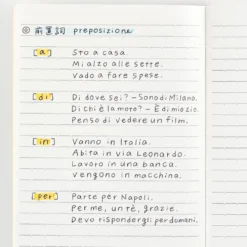 ◎ 前置詞 preposizione
[a] Sto a casa.
Mi alzo alle sette.
Vado a fare spese.
[di] Di dove sei? – Sono di Milano.
Di chi è la moto? – È di mio zio.
Penso di vedere un film.
[in] Vanno in Italia.
Abita in via Leonardo.
Lavoro in una banca.
Vengono in macchina.
[per] Parte per Napoli.
Per me, un tè, grazie.
Devo rispondergli per domani.